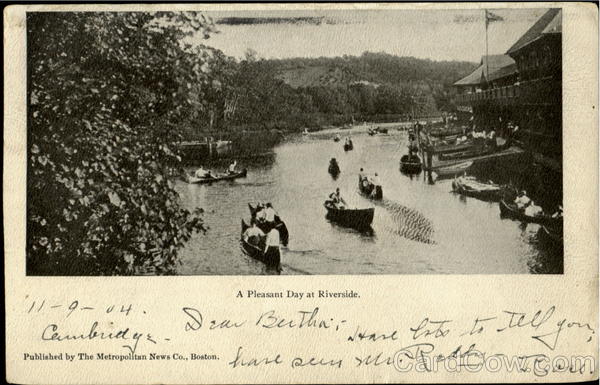 A Pleasant Day at Riverside.
11-9-04.
Cambridge-
Dear Bertha;-
Have lots to tell you,
have seen Mr.
Published by The Metropolitan News Co., Boston.
CardCow.com